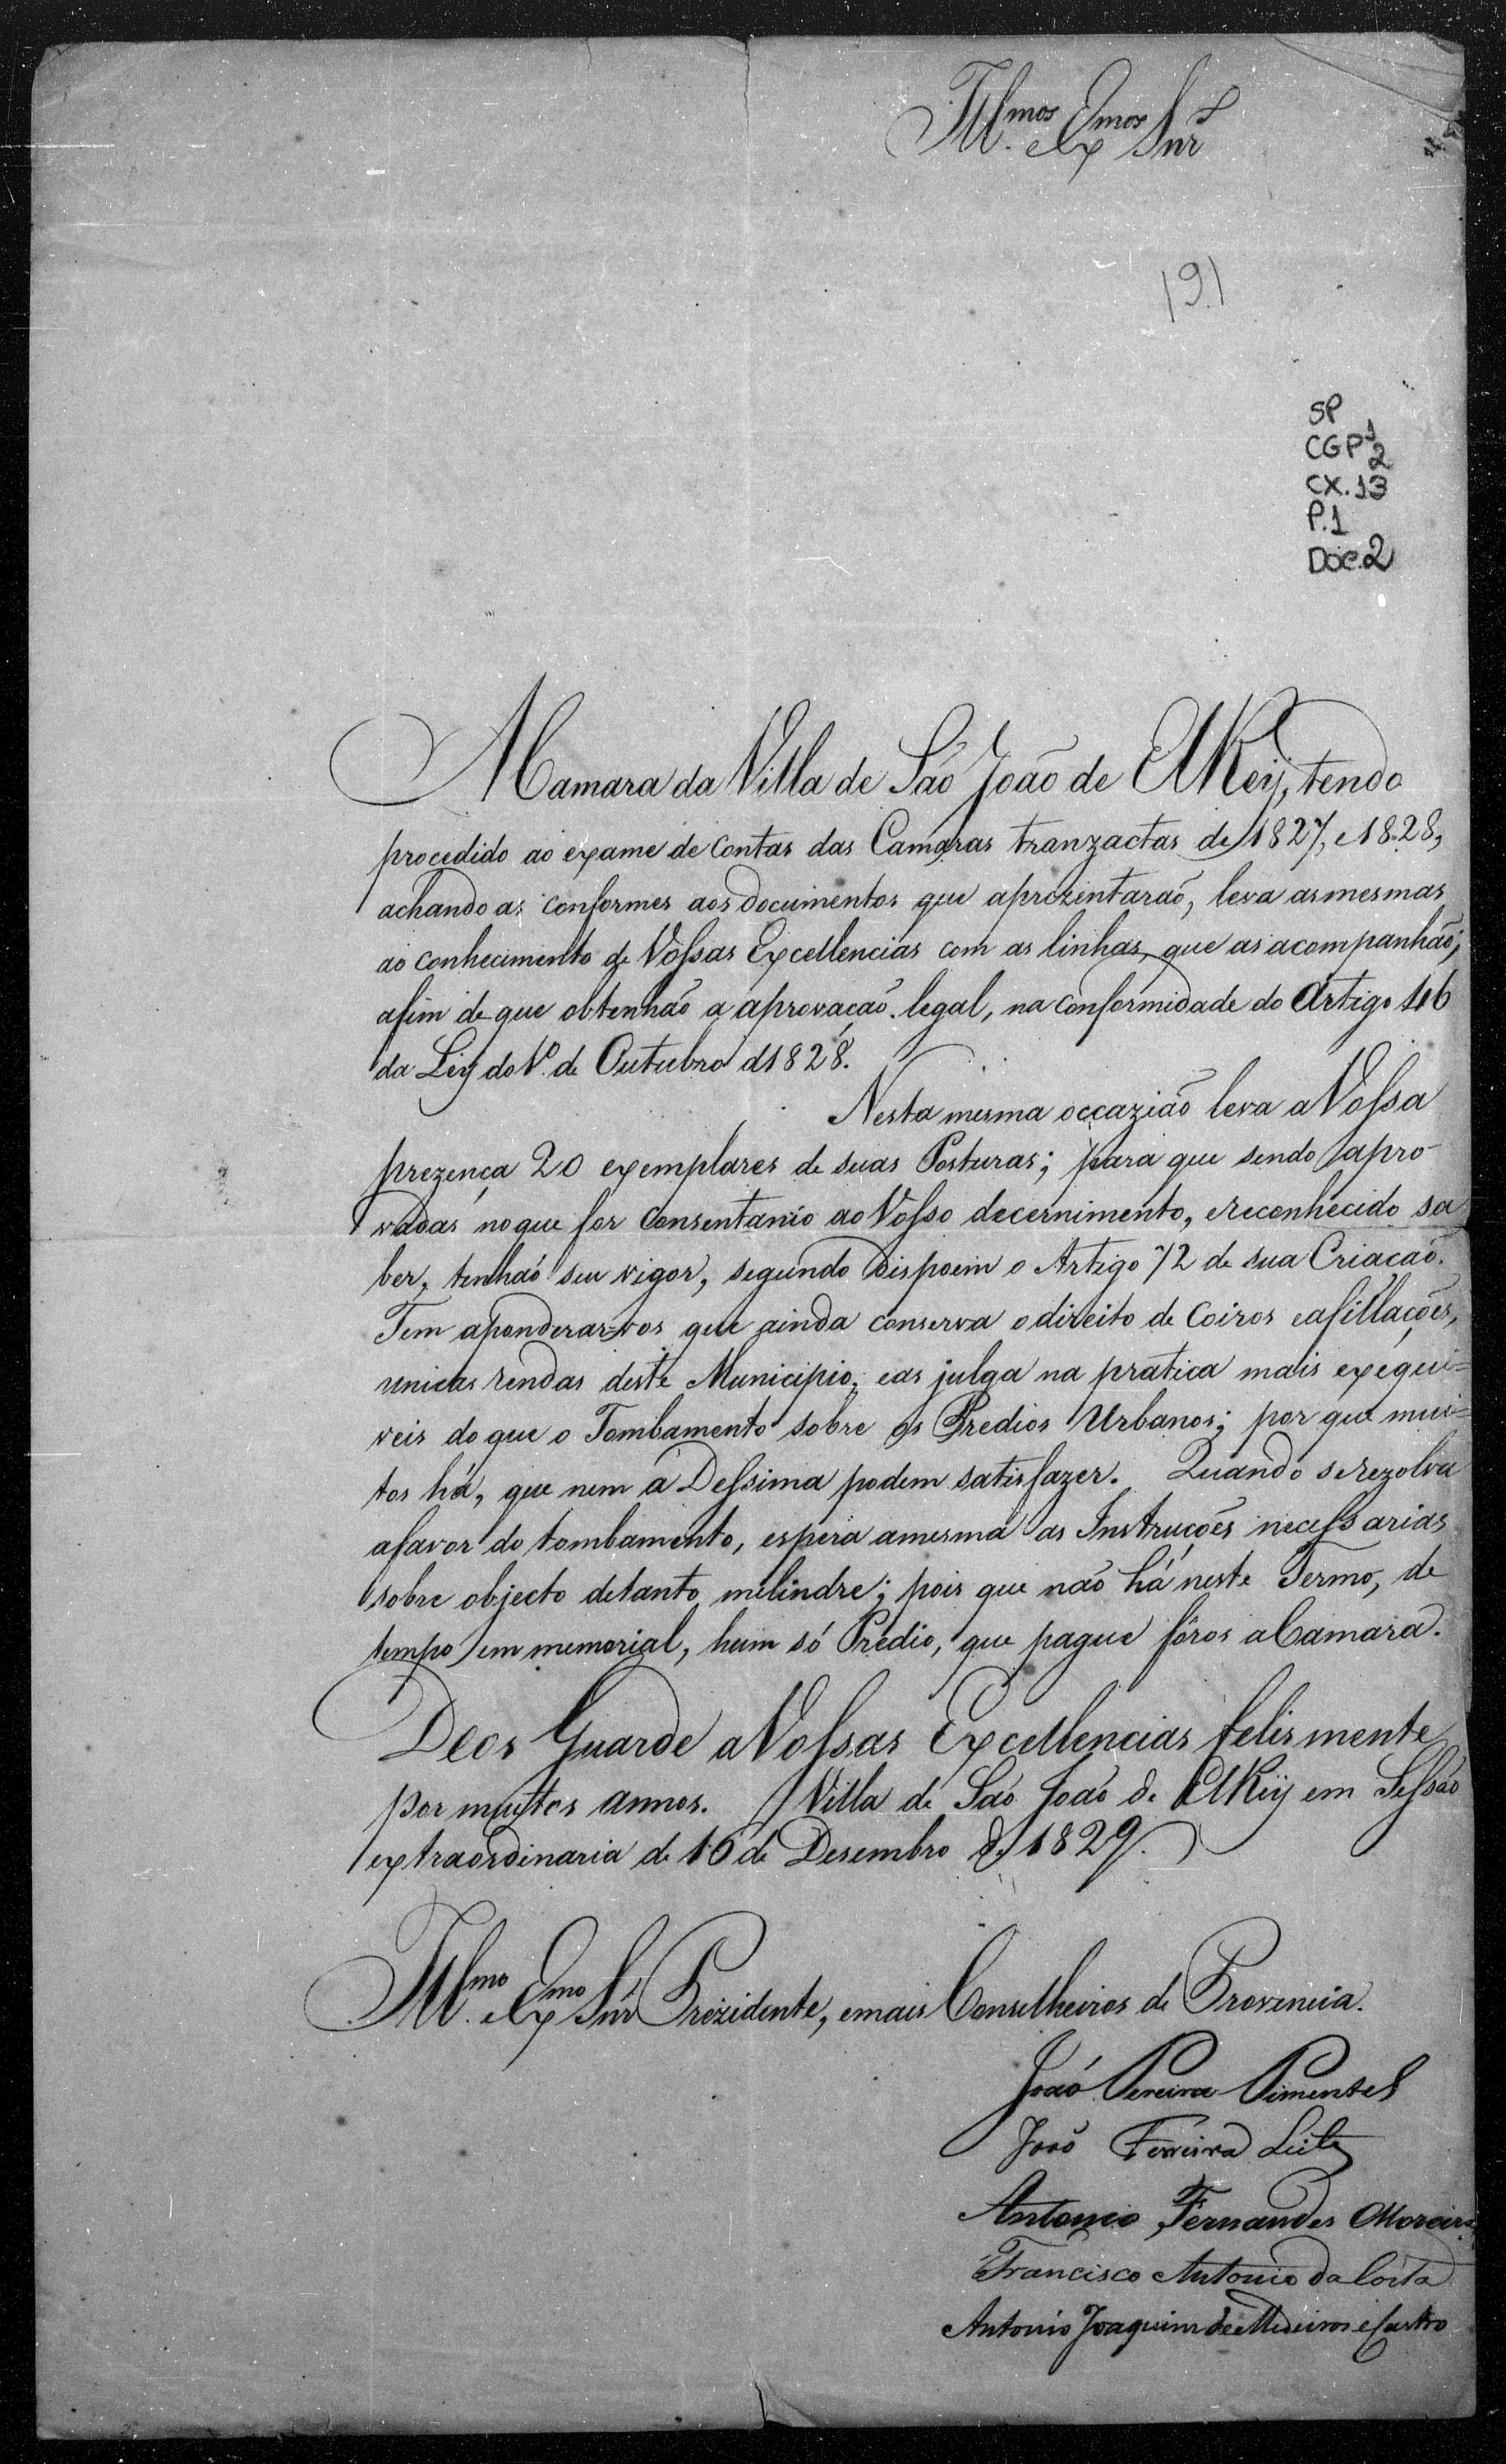 Ill.mos e Ex.mos Snr.s
191
SP
CGP 1
2
CX. 13
P. 1
Doc. 2
A Camara da Villa de São João de ElRey, tendo
procedido ao exame de contas das Camaras tranzactas de 1827, e 1828,
achando as conformes aos documentos que aprezentaraõ, leva as mesmas
ao conhecimento de Vossas Excellencias com as linhas, que as acompanhaõ;
afim de que obtenhaõ a aprovaçaõ legal, na conformidade do Artigo 46
da Ley do 1º de Outubro d1828.
Nesta mesma occaziaõ leva a Vossa
prezença 20 exemplares de suas Posturas; para que sendo apro-
vadas no que for consentanio ao Vosso decernimento, e reconhecido sa
ber, tenhaõ seu vigor, segundo dispoem o Artigo 72 de sua Criaçaõ.
Tem a ponderar-vos que ainda conserva o direito de Coiros e afillações,
unicas rendas deste Municipio; e as julga na pratica mais exequi=
veis do que o Tombamento sobre os Predios Urbanos; por que mui=
tos há, que nem a Dessima podem satisfazer. Quando se rezolva
a favor do tombamento, espera a mesma as Instrucções necessarias
sobre objecto de tanto melindre; pois que naõ há neste Termo, de
tempo em memorial, hum só Predio, que pague fóros a Camara.
Deos Guarde a Vossas Excellencias felismente
por muitos annos. Villa de Saõ Joaõ de ElRey em Sessaõ
extraordinaria de 16 de Desembro de 1829.
Ill.mo e Ex.mo Snr Prezidente, e mais Conselheiros de Provincia.
Joaõ Pereira Pimentel
Joaõ Ferreira Leite
Antonio Fernandes Moreira
Francisco Antonio da Costa
Antonio Joaquim de Medeiros e Castro